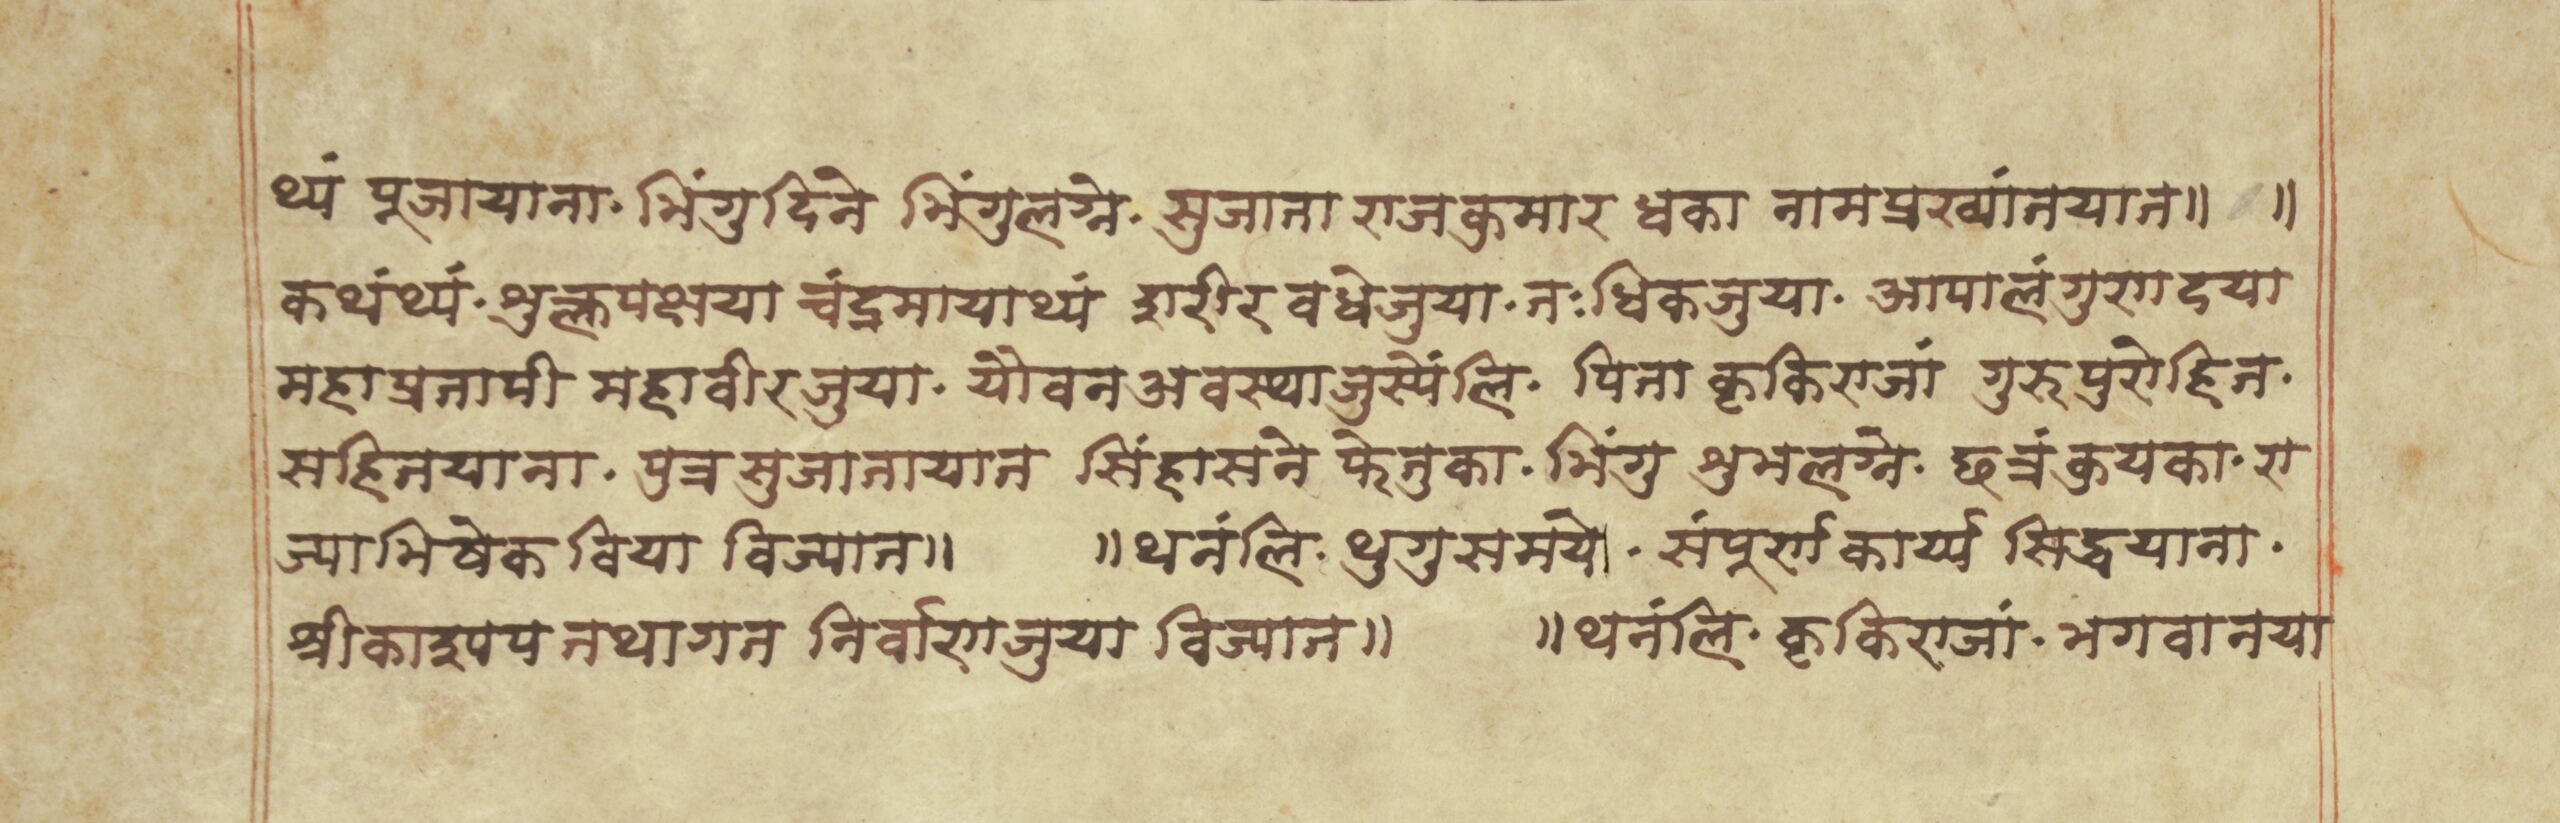 थ्यं पूजायाना· भिंगुदिने भिंगुलग्ने· सुजाता राजकुमार धका नामप्रख्यांतयात॥ ॥
कथंथ्यं· शुक्लपक्षया चंद्रमायाथ्यं शरीर वधेजुया· तःधिकजुया· आपालं गुरण दया
महाप्रतापी महावीरजुया· यौवनअवस्थाजुस्येंलि· पिता कृकिराजां गुरुपुरोहित·
सहितयाना· पुत्र सुजातायात सिंहासने फेतुका· भिंगु शुभलग्ने· छत्रं कुयका· रा
ज्याभिषेक विया विज्यात॥ ॥थनंलि· थुगुसमये· संपूर्ण कार्य्य सिद्धयाना·
श्रीकाश्यप तथागत निर्वाण जुया विज्यात॥ ॥थनंलि· कृकिराजां· भगवानया